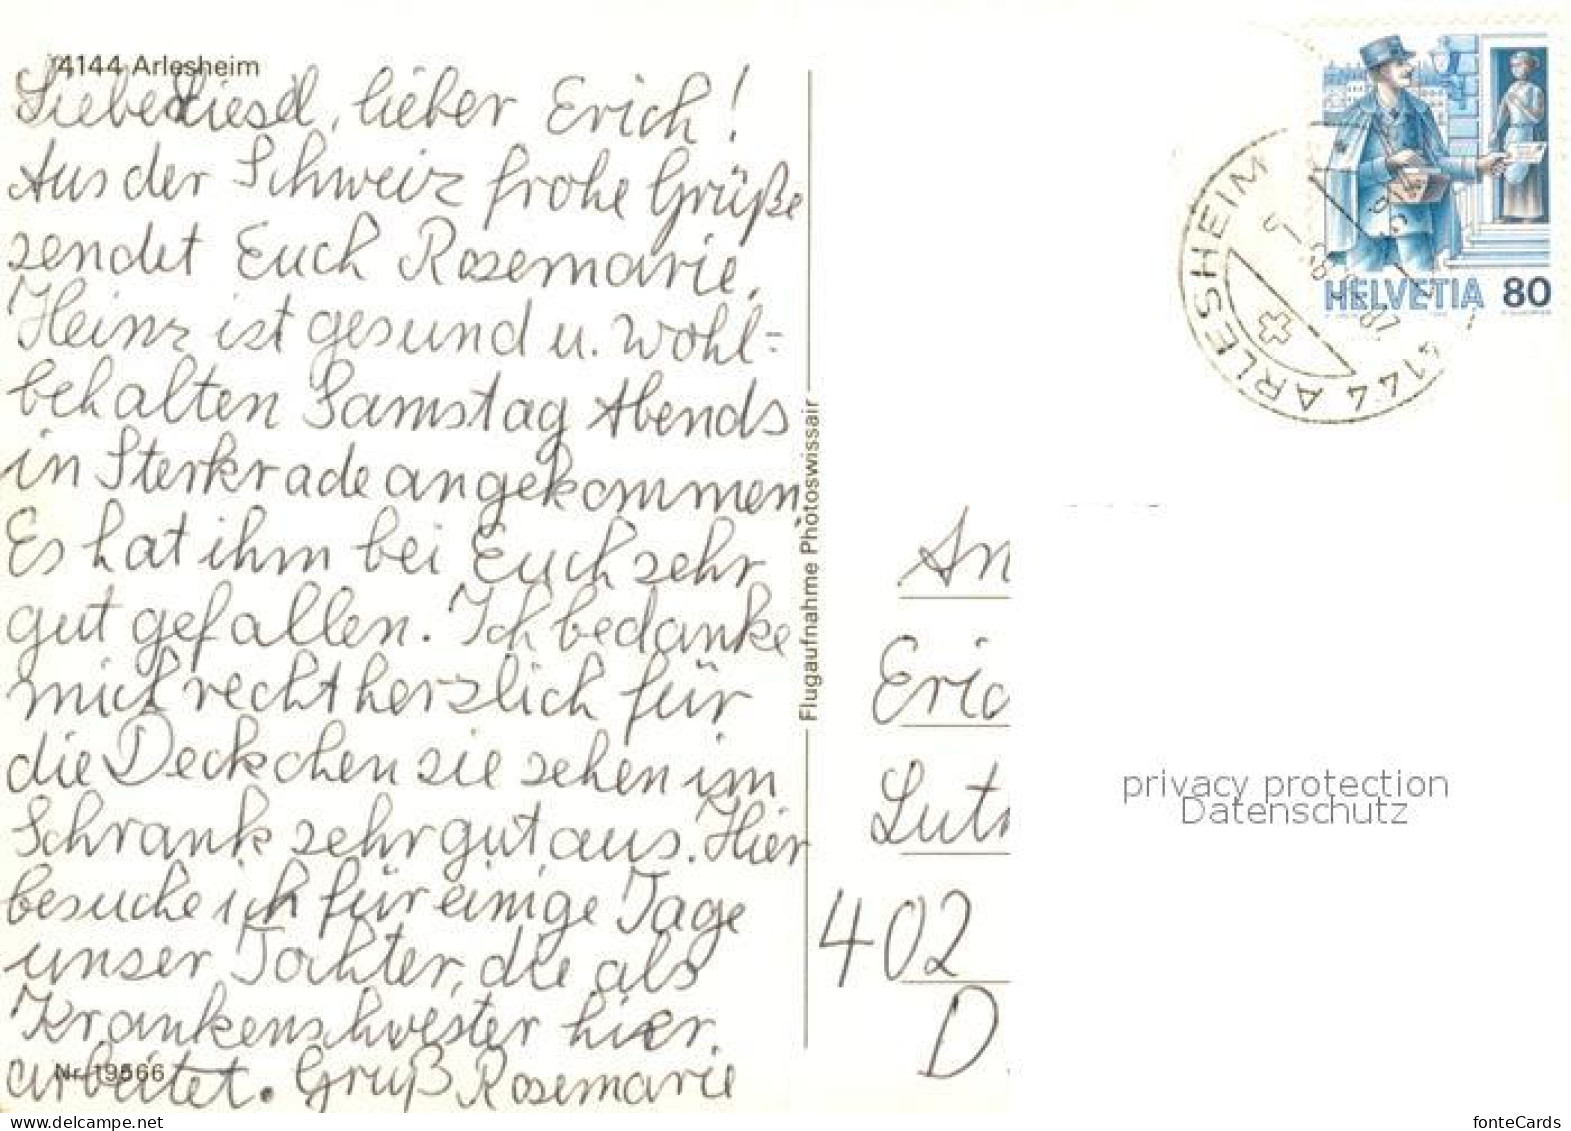 4144 Arlesheim
Liebe Liesel, lieber Erich!
Aus der Schweiz frohe Grüße
sendet Euch Rosemarie.
Heinz ist gesund u. wohl=
behalten Samstag Abends
in Sterkrade angekommen.
Es hat ihm bei Euch sehr
gut gefallen. Ich bedanke
mich recht herzlich für
die Deckchen sie sehen im
Schrank sehr gut aus. Hier
besuche ich für einige Tage
unser Tochter, die als
Krankenschwester hier
arbeitet. Gruß Rosemarie
Nr. 19566
Flugaufnahme Photoswissair
HELVETIA 80
4144 ARLESHEIM
An
Eric
Lut
402
D
privacy protection
Datenschutz
www.delcampe.net
fonteCards